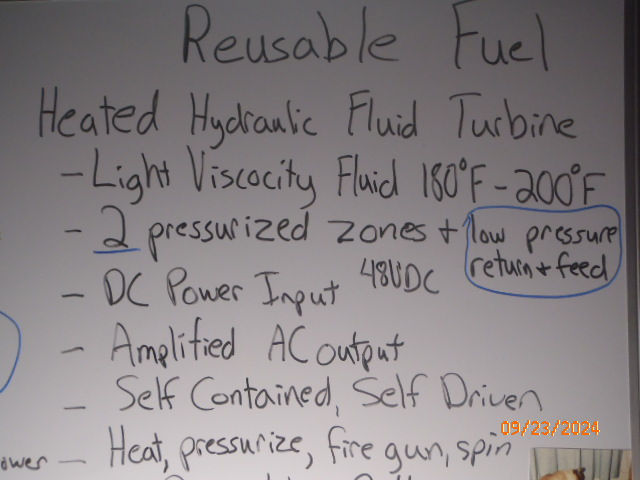 Reusable Fuel
Heated Hydraulic Fluid Turbine
- Light Viscocity Fluid 180°F - 200°F
- 2 pressurized zones + low pressure
return + feed
- DC Power Input 48VDC
- Amplified AC output
- Self Contained, Self Driven
09/23/2024
ower - Heat, pressurize, fire gun, spin